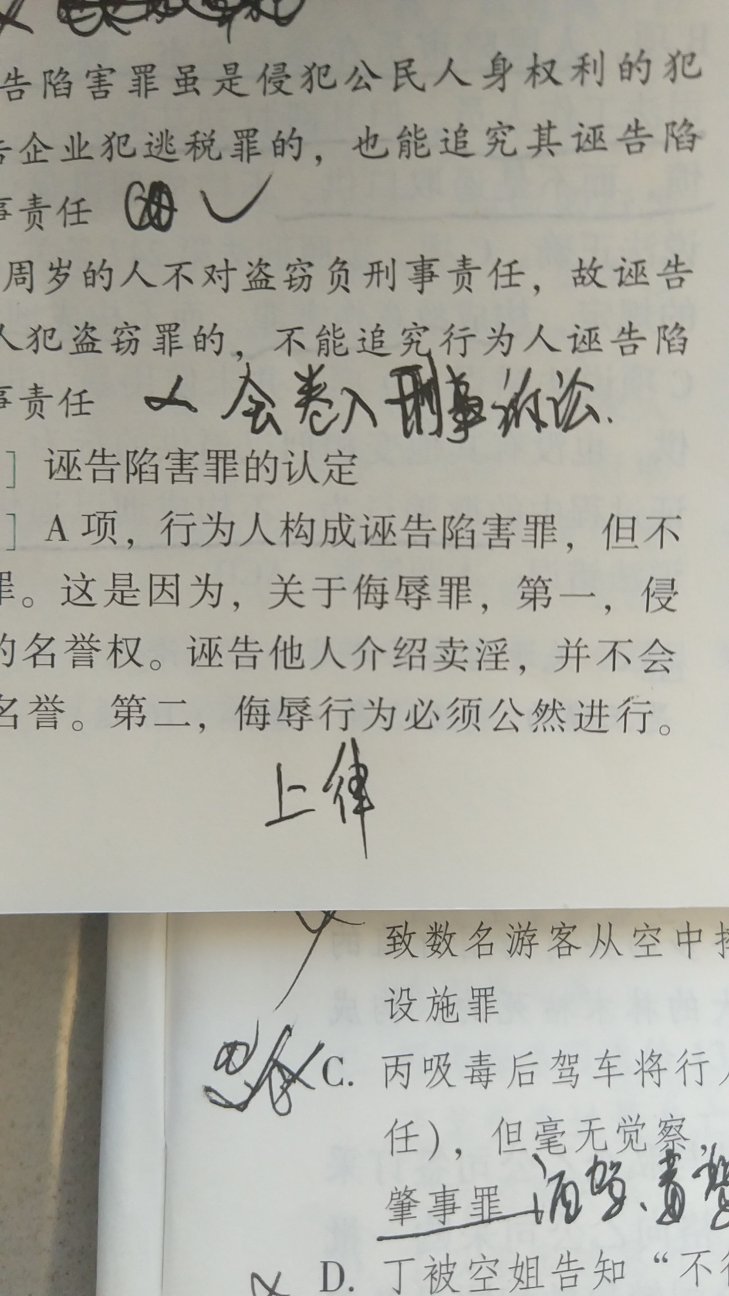 告陷害罪虽是侵犯公民人身权利的犯
告企业犯逃税罪的，也能追究其诬告陷
事责任
周岁的人不对盗窃负刑事责任，故诬告
人犯盗窃罪的，不能追究行为人诬告陷
事责任 会卷入刑事诉讼.
] 诬告陷害罪的认定
] A 项，行为人构成诬告陷害罪，但不
罪。这是因为，关于侮辱罪，第一，侵
的名誉权。诬告他人介绍卖淫，并不会
名誉。第二，侮辱行为必须公然进行。
上律
致数名游客从空中摔
设施罪
C. 丙吸毒后驾车将行人
任)，但毫无觉察，
肇事罪 酒驾、毒驾
D. 丁被空姐告知“不得